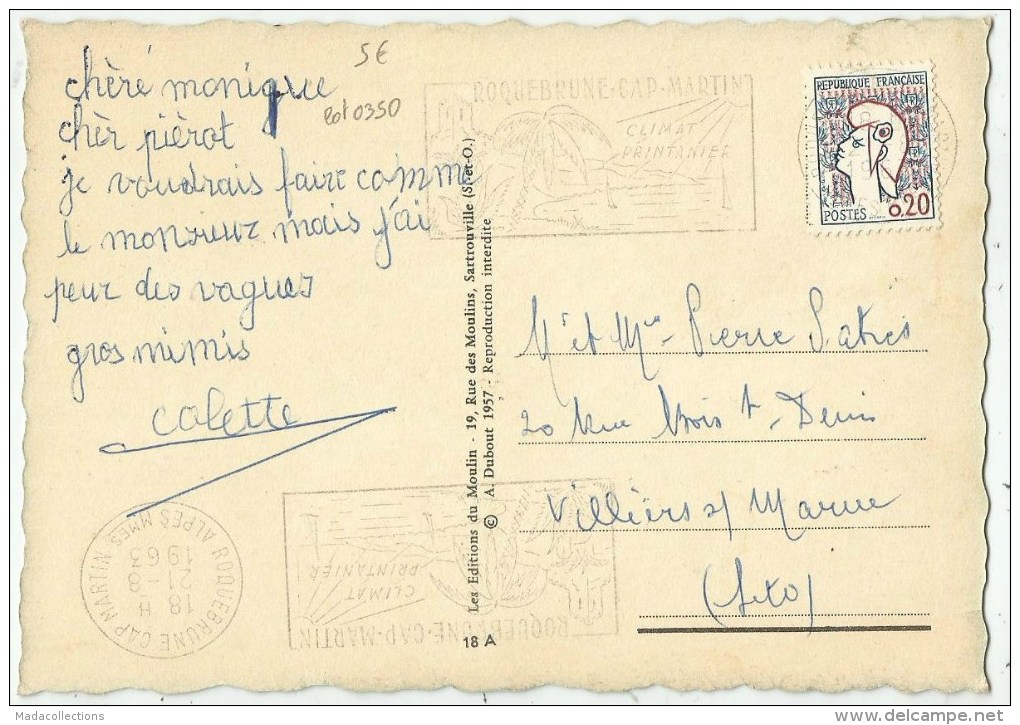 5€
lot 0350
chèré monique
chèr pièrot
je voudrais faire comme
le monsieur mais j'ai
peur des vagues
gros mimis
colette
ROQUEBRUNE-CAP-MARTIN
CLIMAT
PRINTANIER
REPUBLIQUE FRANÇAISE
POSTES
0,20
Les Editions du Moulin - 19, Rue des Moulins, Sartrouville (S.-et-O.)
© A. Dubout 1957 - Reproduction interdite
Mr et Mme Pierre
20 Rue Bois St. Denis
Villiers s/ Marne
(S et O)
ROQUEBRUNE CAP MARTIN
ALPES MMES
18 H
21-8
1963
ROQUEBRUNE-CAP-MARTIN
CLIMAT
PRINTANIER
18 A
Madacollections
delcampe.net